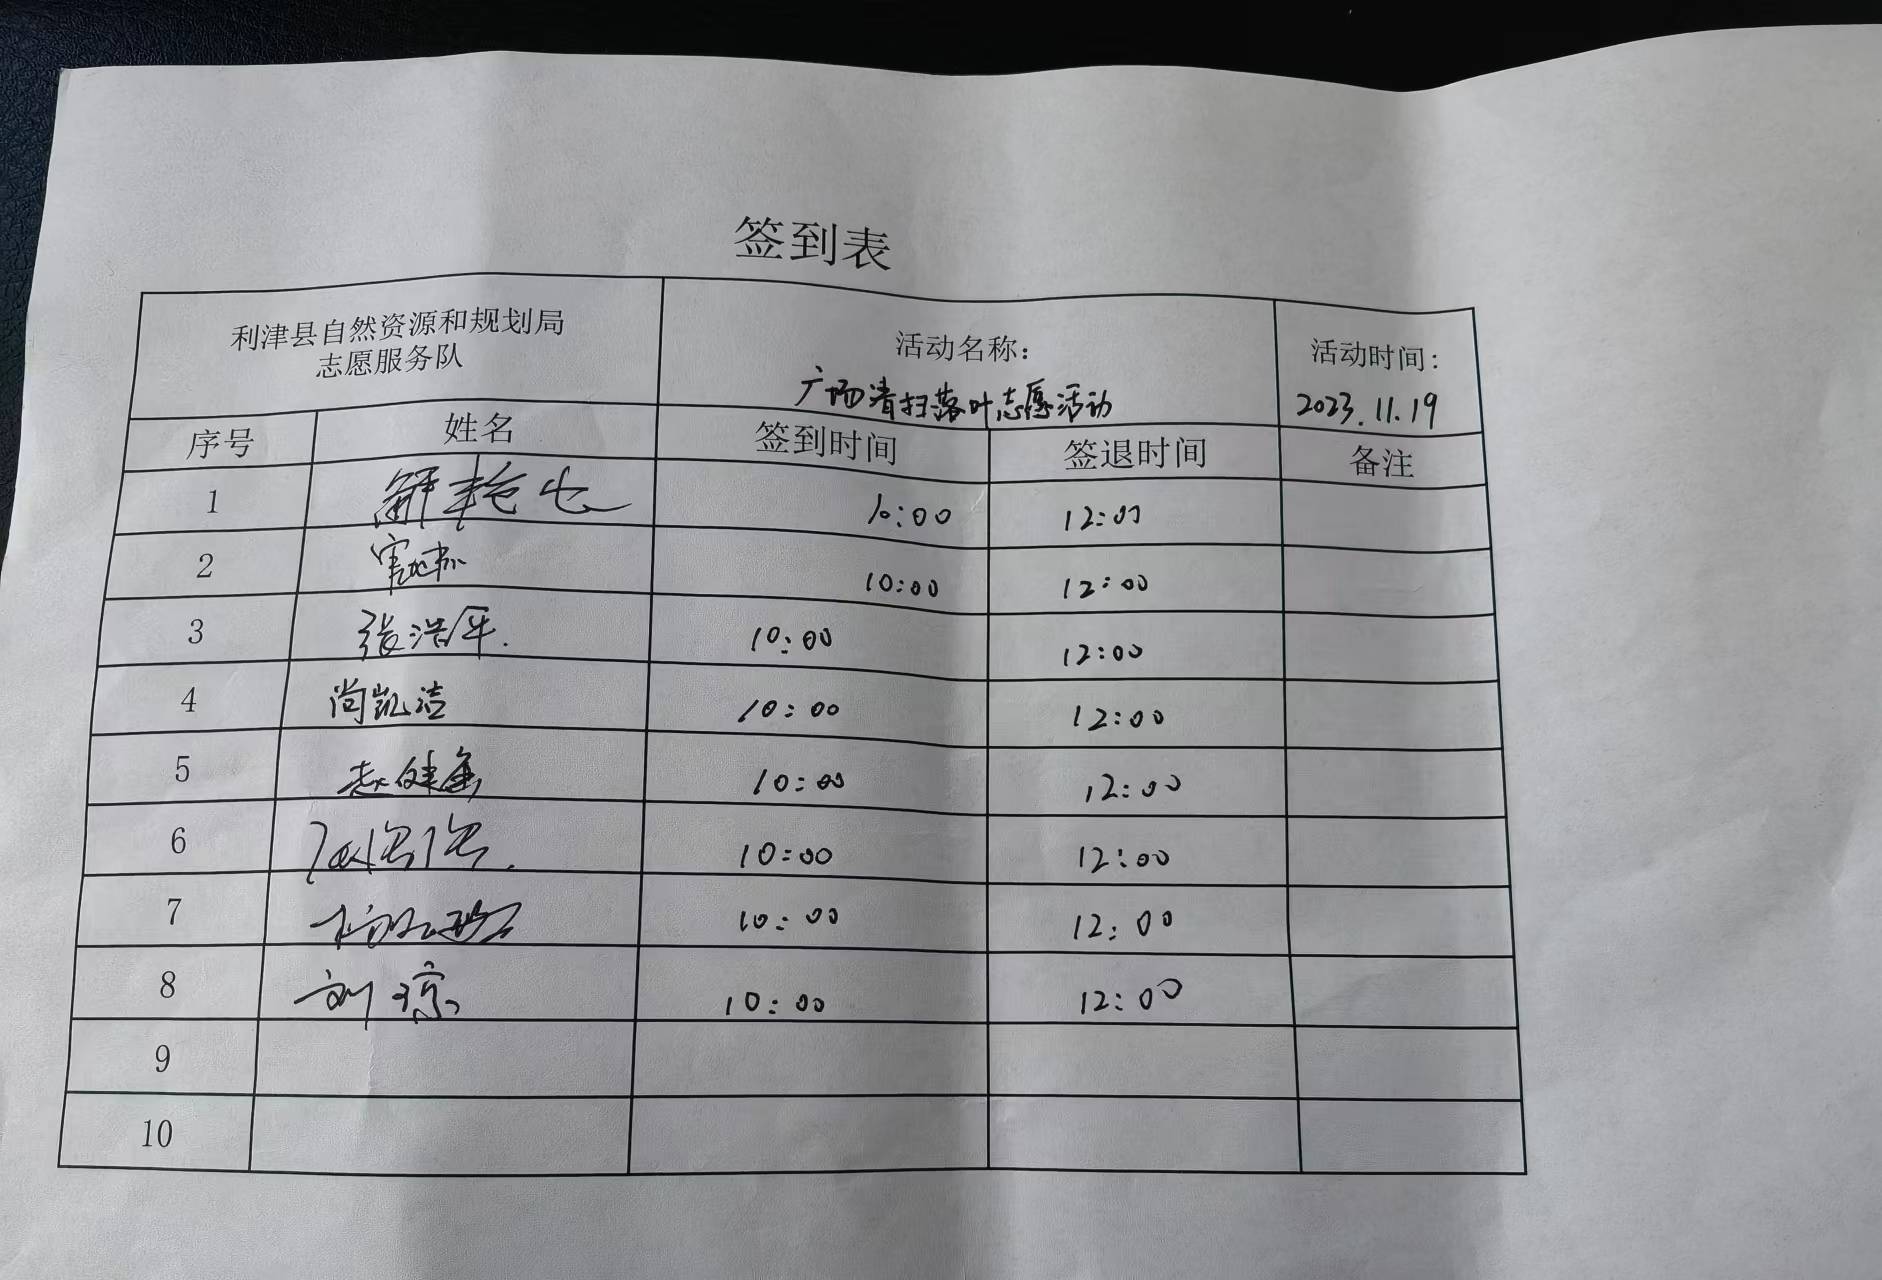 签到表
利津县自然资源和规划局
志愿服务队
活动名称:
广场清扫落叶志愿活动
活动时间:
2023.11.19
序号 姓名 签到时间 签退时间 备注
1 10:00 12:00
2 10:00 12:00
3 张浩军. 10:00 12:00
4 尚凯洁 10:00 12:00
5 赵健 10:00 12:00
6 10:00 12:00
7 10:00 12:00
8 刘琼 10:00 12:00
9
10